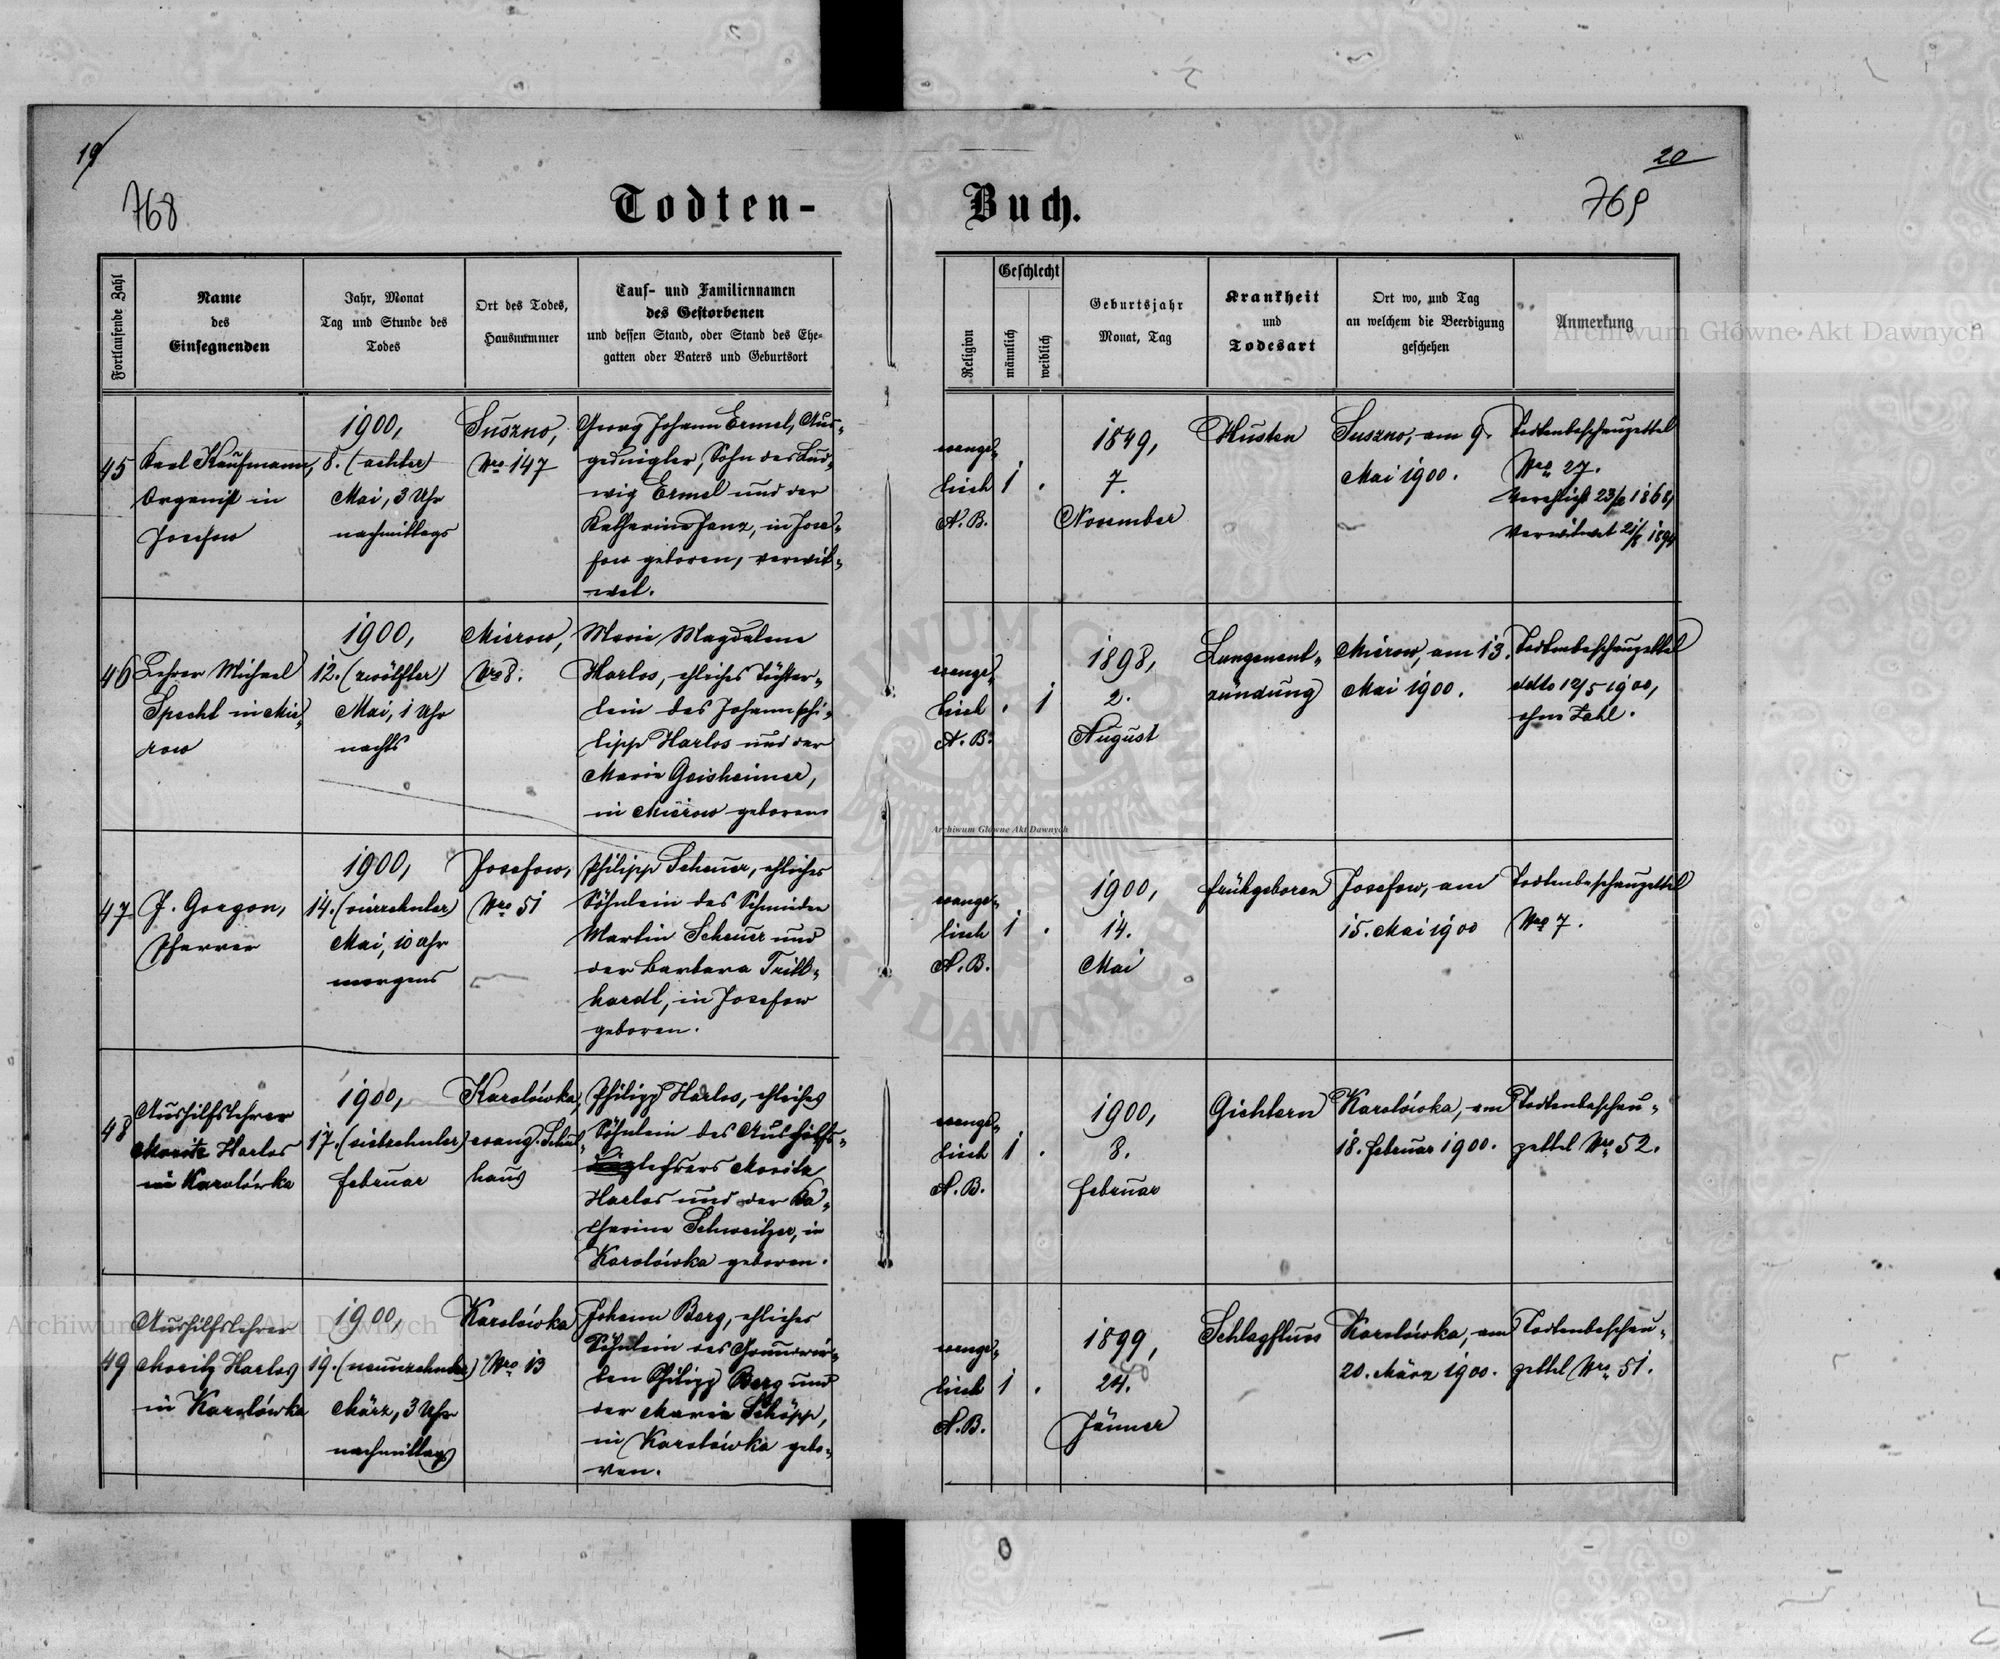 19
20
768
769
Todten-
Buch.
Fortlaufende Zahl
Name
des
Einsegnenden
Jahr, Monat
Tag und Stunde des
Todes
Ort des Todes,
Hausnummer
Tauf- und Familiennamen
des Gestorbenen
und dessen Stand, oder Stand des Ehe-
gatten oder Vaters und Geburtsort
Religion
Geschlecht
männlich
weiblich
Geburtsjahr
Monat, Tag
Krankheit
und
Todesart
Ort wo, und Tag
an welchem die Beerdigung
geschehen
Anmerkung
45
Karl Kaufmann,
Organist in
Josefow
1900,
8. (achter)
Mai, 3 Uhr
nachmittags
Suszno,
Nro 147
Georg Johann Ermel, Aus-
gedingler, Sohn des Lud-
wig Ermel und der
Katharina Janz, in Jose-
fow geboren, verwit-
wet.
evange-
lisch
A. B.
1 .
1849,
7.
November
Husten
Suszno, am 9.
Mai 1900.
Todtenbeschauzettel
Nro 27.
Verehlicht 23/2 1868,
Verwitwet 21/8 1894
46
Lehrer Michael
Specht in Mie-
row
1900,
12. (zwölfter)
Mai, 1 Uhr
nachts
Mierow,
Nro 8.
Maria Magdalena
Harlos, ehliches Töchter-
lein des Johann Phi-
lipp Harlos und der
Maria Geisheimer,
in Mierow geboren
evange-
lisch
A. B.
. 1
1898,
2.
August
Lungenent-
zündung
Mierow, am 13.
Mai 1900.
Todtenbeschauzettel
ddto 12/5 1900,
ohne Zahl.
47
J. Gorgon,
Pfarrer
1900,
14. (vierzehnter)
Mai, 10 Uhr
morgens
Josefow,
Nro 51
Philipp Scheuer, ehliches
Söhnlein des Schmieden
Martin Scheuer und
der Barbara Trill-
hardt, in Josefow
geboren.
evange-
lisch
A. B.
1 .
1900,
14.
Mai
Frühgeboren
Josefow, am
15. Mai 1900
Todtenbeschauzettel
Nro 7.
48
Aushilfslehrer
Moritz Harlos
in Karolówka
1900,
17. (siebzehnter)
Februar
Karolówka,
evang. Schul-
haus
Philipp Harlos, ehliches
Söhnlein des Aushilfs-
lehrers Moritz
Harlos und der Ka-
tharina Schweitzer, in
Karolówka geboren.
evange-
lisch
A. B.
1 .
1900,
8.
Februar
Gichtern
Karolówka, am
18. Februar 1900.
Todtenbeschau-
zettel Nro 52.
49
Aushilfslehrer
Moritz Harlos
in Karolówka
1900,
19. (neunzehnter)
März, 3 Uhr
nachmittags
Karolówka
Nro 13
Johann Berg, ehliches
Söhnlein des Grundwir-
ten Philipp Berg und
der Maria Schöpp,
in Karolówka gebo-
ren.
evange-
lisch
A. B.
1 .
1899,
24.
Jänner
Schlagfluss
Karolówka, am
20. März 1900.
Todtenbeschau-
zettel Nro 51.
Archiwum Główne Akt Dawnych
Archiwum Główne Akt Dawnych
Archiwum Główne Akt Dawnych